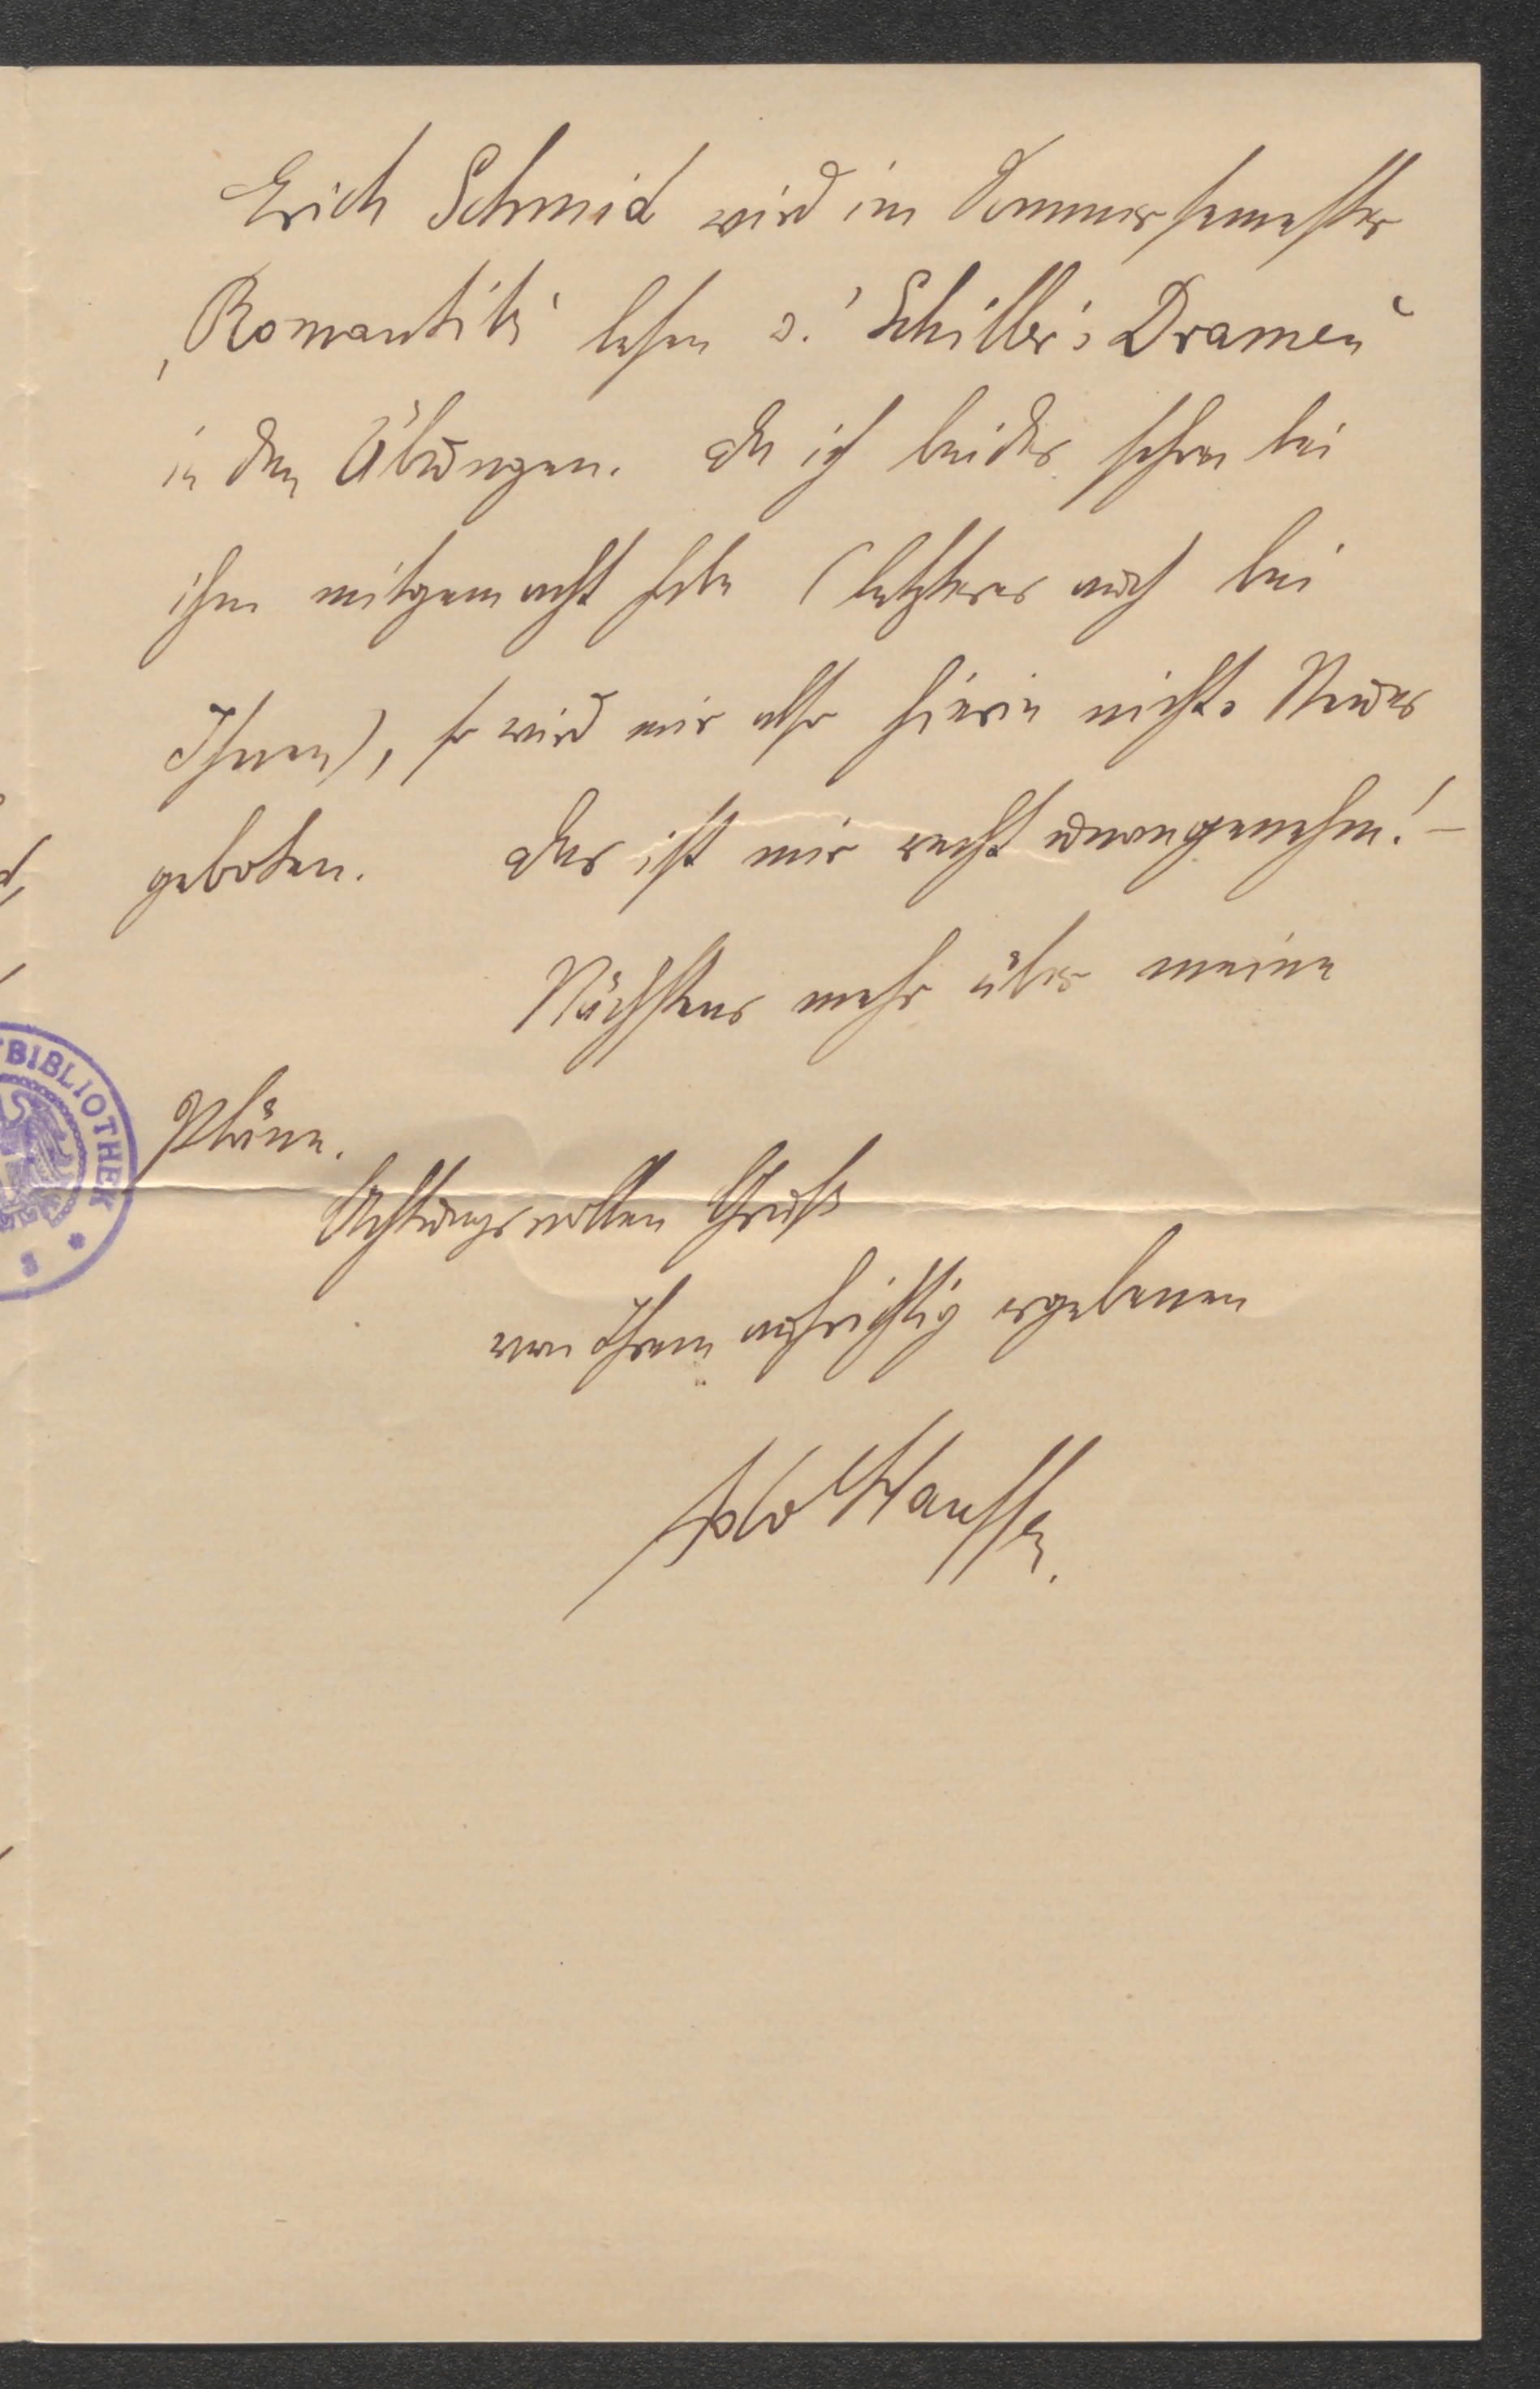 Erich Schmid wird im Sommersemester
‚Romantik‘ lesen u. ‚Schiller's Dramen‘
in den Übungen. Da ich beides schon bei
ihm mitgemacht habe (letzteres auch bei
Ihnen), so wird mir also hierin nichts Neues
geboten. Das ist mir recht unangenehm! –
Nächstens mehr über meine
Pläne.
Achtungsvollen Gruß
von Ihrem aufrichtig ergebenen
Adolf Hauffen.
BIBLIOTHEK